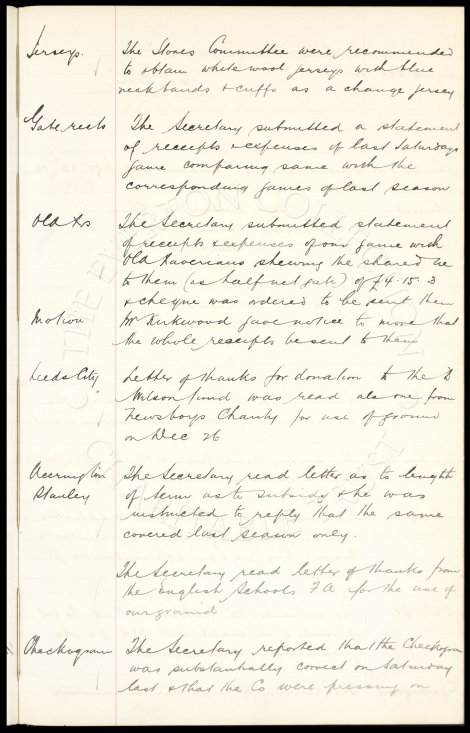 Jerseys. The Stores Committee were recommended
to obtain white wool jerseys with blue
neckbands & cuffs as a change jersey
Gate rects The Secretary submitted a statement
of receipts & expenses of last Saturdays
game comparing same with the
corresponding games of last season
Old Xs The Secretary submitted statement
of receipts & expenses of our game with
Old Xaverians shewing the share due
to them (as half net gate) of £4.15.3
& cheque was ordered to be sent them
Motion Mr Kirkwood gave notice to move that
the whole receipts be sent to them
Leeds City, Letter of thanks for donation to the D
Wilson fund was read also one from
Newsboys Charity for use of ground
on Dec 26
Accrington The Secretary read letter as to length
Stanley of term as to subsidy & he was
instructed to reply that the same
covered last season only.
The Secretary read letter of thanks from
the English Schools F A for the use of
our ground
Checkogram The Secretary reported that the Checkogram
was substantially correct on Saturday
last & that the Co were pressing on